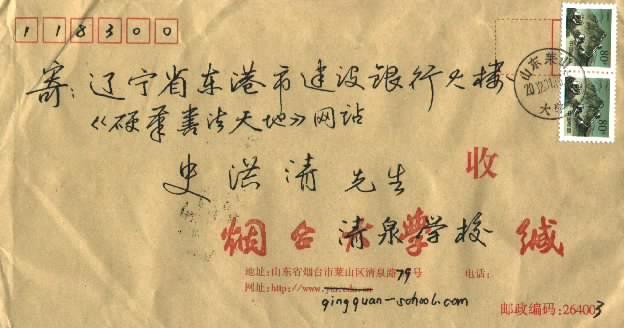 118300
寄:辽宁省东港市建设银行大楼
《硬笔书法天地》网站
史洪清 先生 收
烟台大学 清泉学校 缄
地址:山东省烟台市莱山区清泉路79号 电话:
网址:http://www.ytu.edu.cn
qingquan-school.com
邮政编码:264003
山东莱山
80分
80分